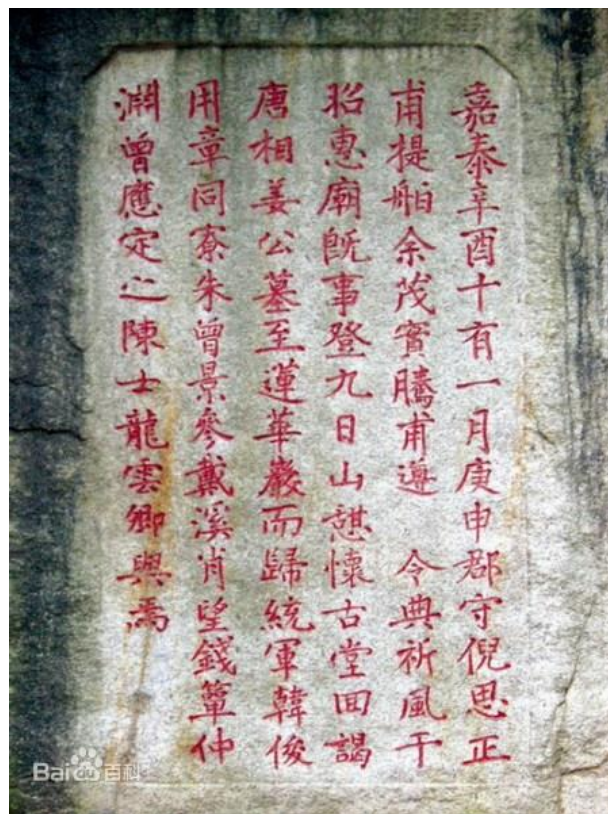 嘉泰辛酉十有一月庚申郡守倪思正
甫提舶余茂實騰甫遵　令典祈風于
昭惠廟既事登九日山憇懷古堂回謁
唐相姜公墓至蓮華巖而歸統軍韓俊
用章同寮朱曾景參戴溪肖望錢簞仲
淵曾應定之陳士龍雲卿與焉
Baidu百科